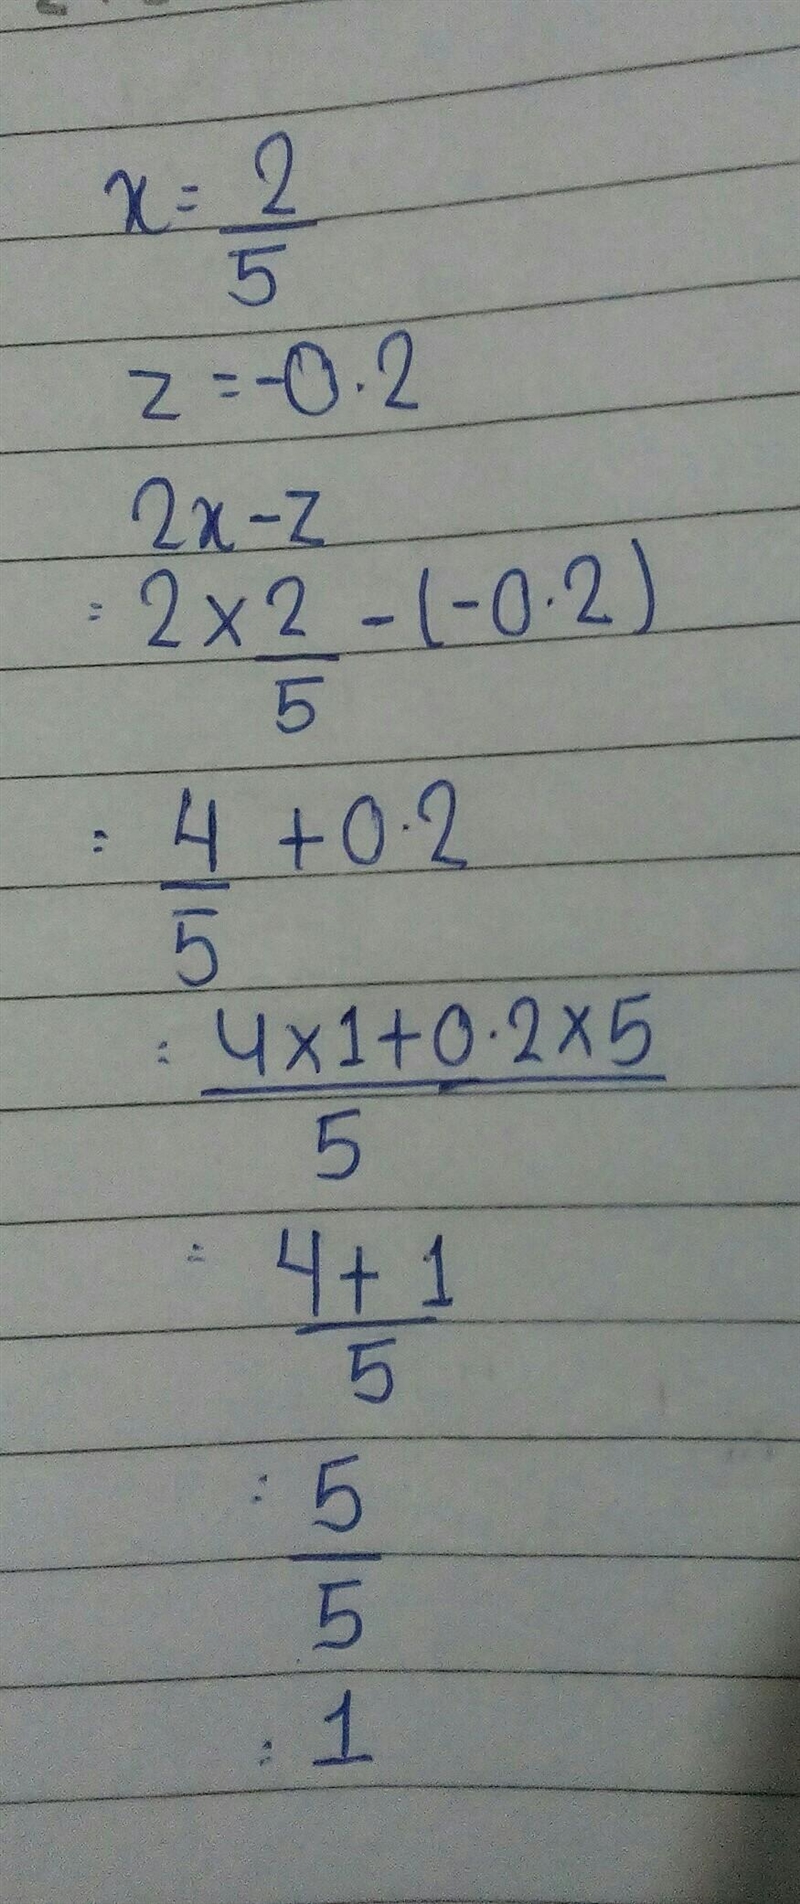 x = 2/5
z = -0.2
2x - z
= 2 × 2/5 - (-0.2)
= 4/5 + 0.2
= 4×1+0.2×5/5
= 4+1/5
= 5/5
= 1